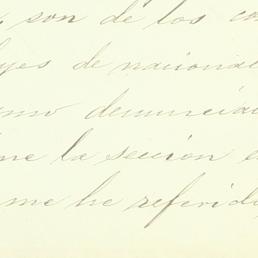 son de los co
yes de naciona
mo denuncia
ne la seccion
me he referid